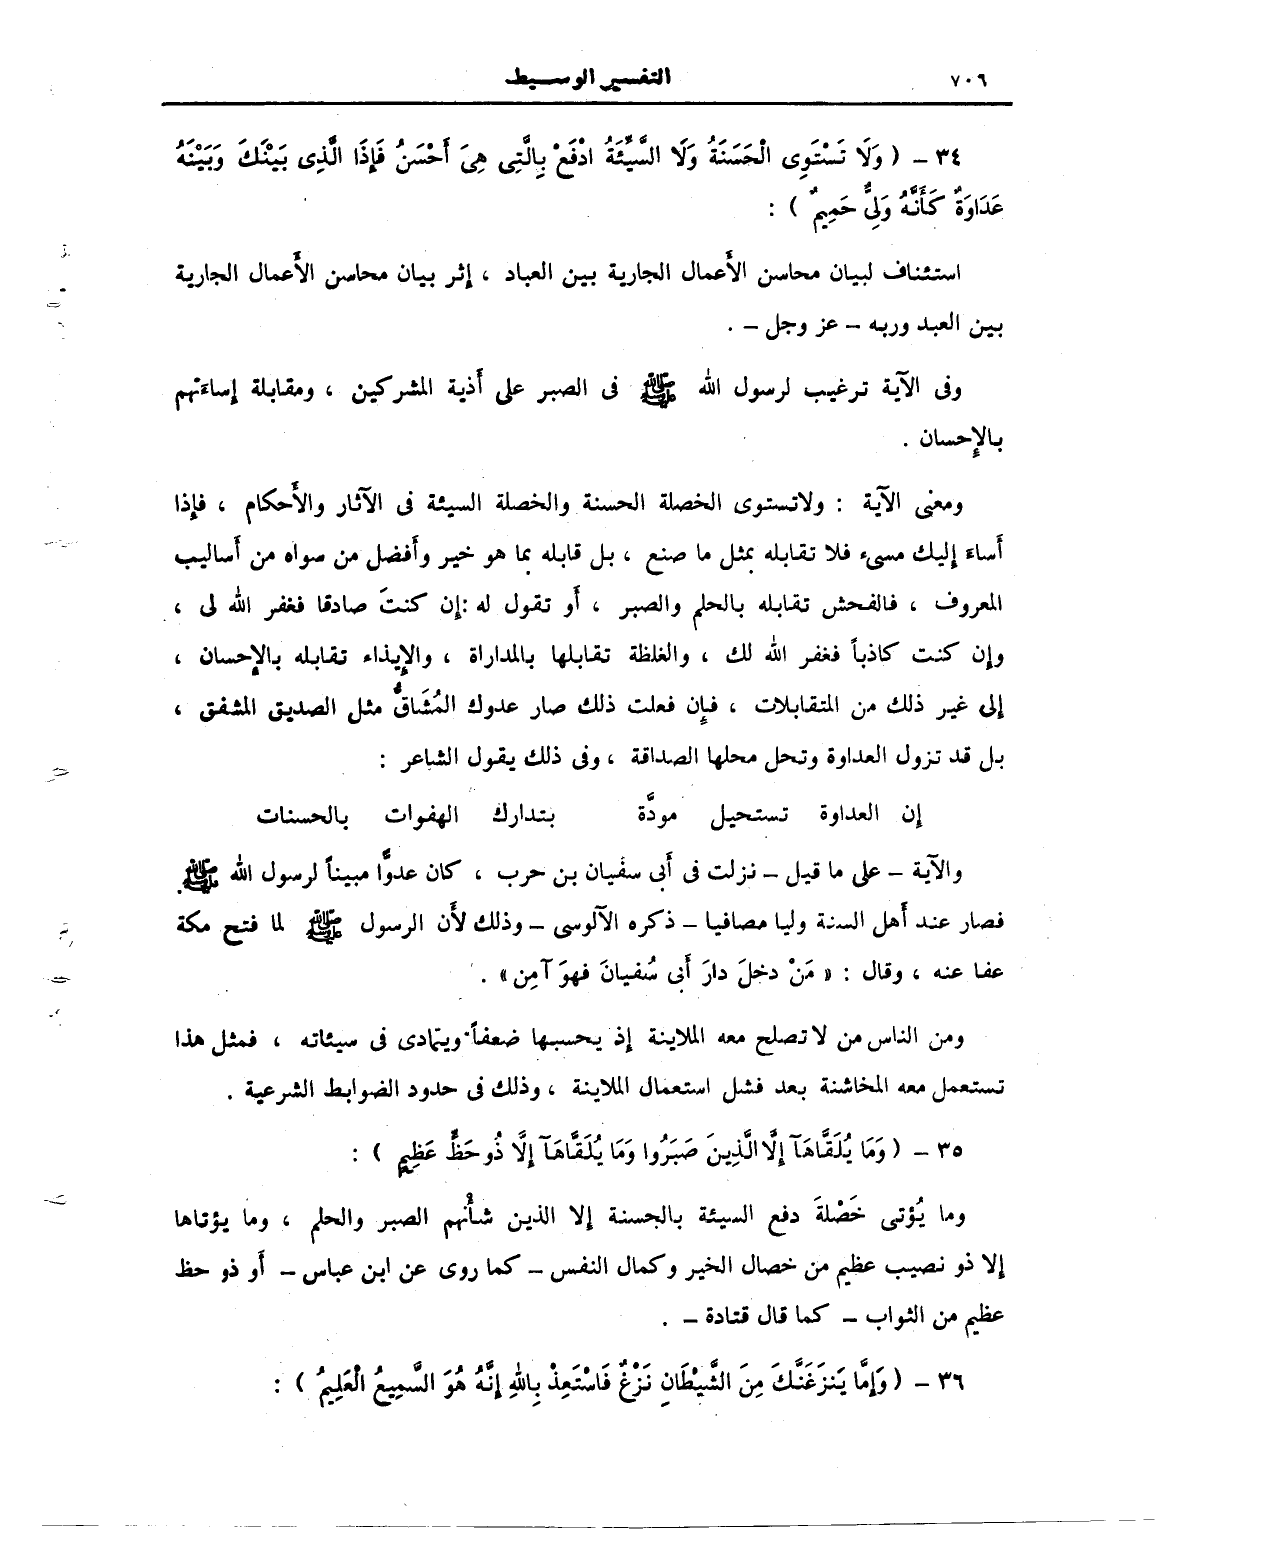 ٧٠٦ التفسير الوسيط
٣٤ – ( وَلَا تَسْتَوِى الْحَسَنَةُ وَلَا السَّيِّئَةُ ادْفَعْ بِالَّتِى هِىَ أَحْسَنُ فَإِذَا الَّذِى بَيْنَكَ وَبَيْنَهُ
عَدَاوَةٌ كَأَنَّهُ وَلِىٌّ حَمِيمٌ ) :
استئناف لبيان محاسن الأَعمال الجارية بين العباد ، إثر بيان محاسن الأَعمال الجارية
بين العبد وربه – عز وجل – .
وفى الآية ترغيب لرسول الله ﷺ فى الصبر على أَذية المشركين ، ومقابلة إساءَتهم
بالإِحسان .
ومعنى الآية : ولاتستوى الخصلة الحسنة والخصلة السيئة فى الآثار والأَحكام ، فإذا
أَساءَ إليك مسىء فلا تقابله بمثل ما صنع ، بل قابله بما هو خير وأَفضل من سواه من أَساليب
المعروف ، فالفحش تقابله بالحلم والصبر ، أَو تقول له :إن كنتَ صادقا فغفر الله لى ،
وإن كنت كاذباً فغفر الله لك ، والغلظة تقابلها بالمداراة ، والإِيذاء تقابله بالإِحسان ،
إلى غير ذلك من المتقابلات ، فإن فعلت ذلك صار عدوك المُشَاقُّ مثل الصديق المشفق ،
بل قد تزول العداوة وتحل محلها الصداقة ، وفى ذلك يقول الشاعر :
إن العداوة تستحيل مودَّة بتدارك الهفوات بالحسنات
والآية – على ما قيل – نزلت فى أَبى سفيان بن حرب ، كان عدوًّا مبيناً لرسول الله ﷺ
فصار عند أَهل السنة وليا مصافيا – ذكره الآلوسى – وذلك لأَن الرسول ﷺ لما فتح مكة
عفا عنه ، وقال : « مَنْ دخلَ دارَ أَبى سُفيانَ فهوَ آمِن» .
ومن الناس من لاتصلح معه الملاينة إذ يحسبها ضعفاً ويتمادى فى سيئاته ، فمثل هذا
تستعمل معه المخاشنة بعد فشل استعمال الملاينة ، وذلك فى حدود الضوابط الشرعية .
٣٥ – ( وَمَا يُلَقَّاهَآ إِلَّا الَّذِينَ صَبَرُوا وَمَا يُلَقَّاهَآ إِلَّا ذُو حَظٍّ عَظِيمٍ ) :
وما يُؤتى خَصْلةَ دفع السيئة بالحسنة إلا الذين شأْنهم الصبر والحلم ، وما يؤتاها
إلا ذو نصيب عظيم من خصال الخير وكمال النفس – كما روى عن ابن عباس – أَو ذو حظ
عظيم من الثواب – كما قال قتادة – .
٣٦ – ( وَإِمَّا يَنزَغَنَّكَ مِنَ الشَّيْطَانِ نَزْغٌ فَاسْتَعِذْ بِاللهِ إِنَّهُ هُوَ السَّمِيعُ الْعَلِيمُ ) :